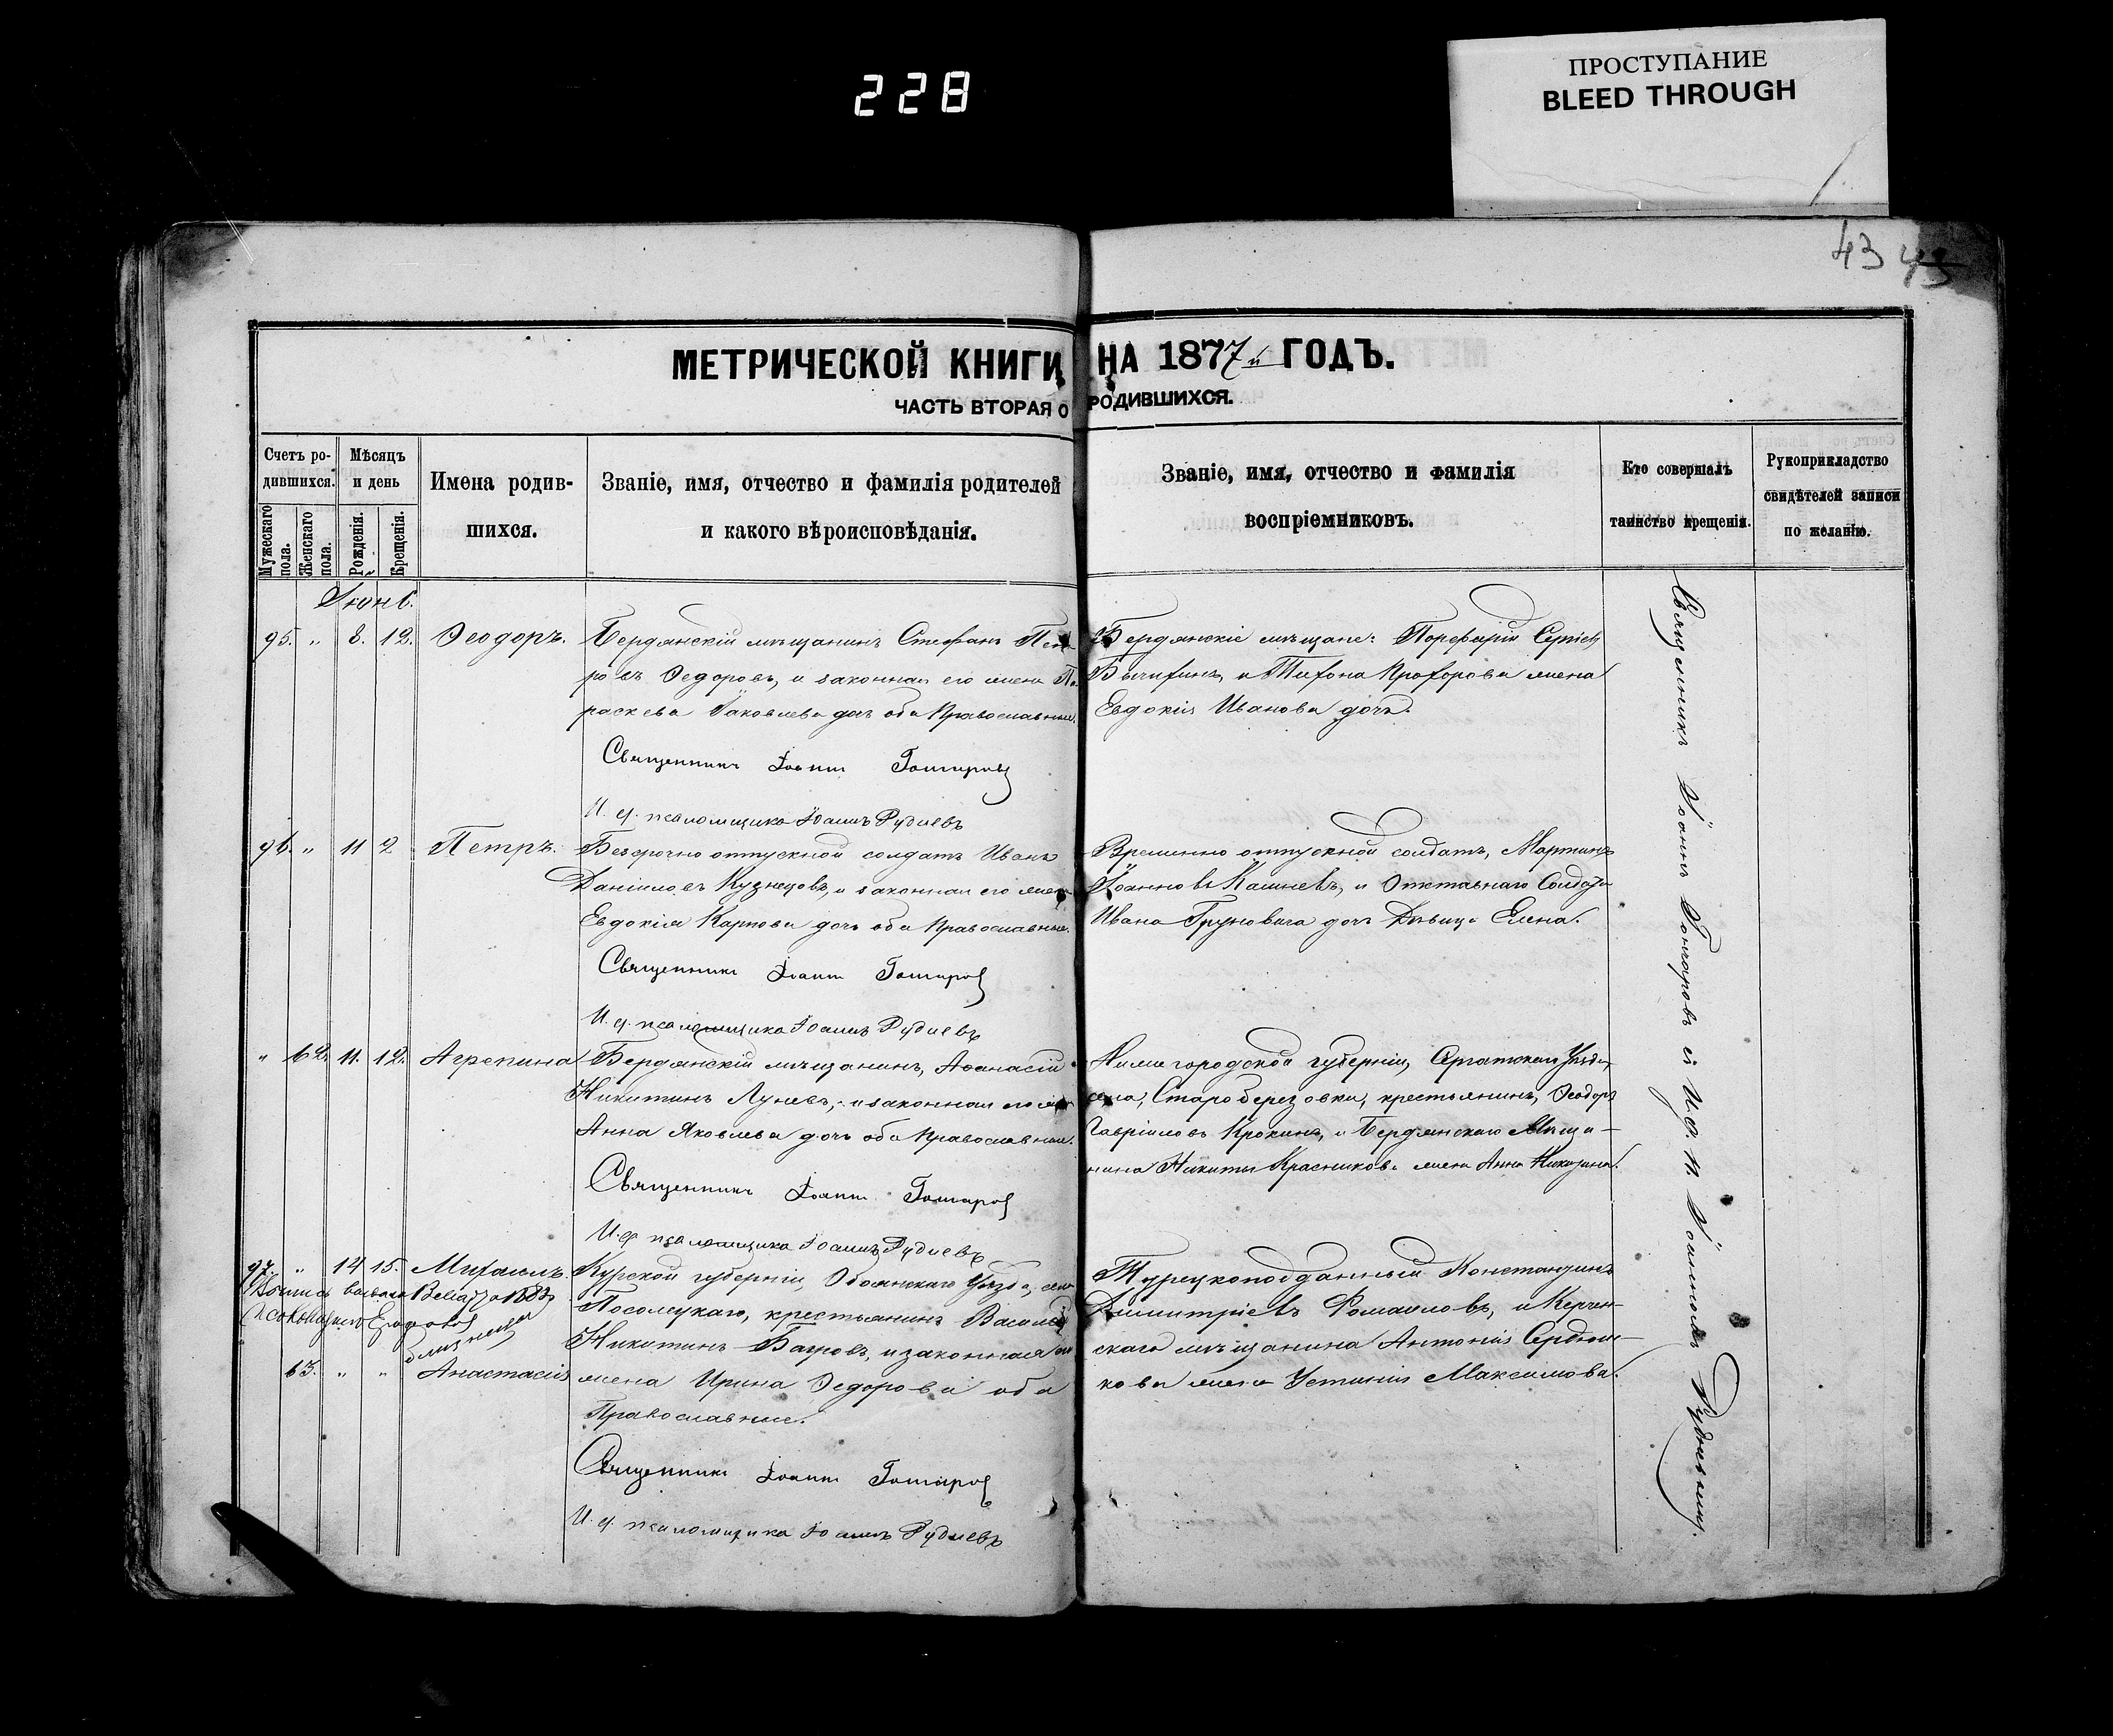 228
ПРОСТУПАНИЕ
BLEED THROUGH
43 43
МЕТРИЧЕСКОЙ КНИГИ НА 1877й ГОДЪ.
ЧАСТЬ ВТОРАЯ О РОДИВШИХСЯ.
Счетъ родившихся.
Мужескаго пола.
Женскаго пола.
Мѣсяцъ и день
Рожденія.
Крещенія.
Имена родившихся.
Званіе, имя, отчество и фамилія родителей
и какого вѣроисповѣданія.
Званіе, имя, отчество и фамилія
воспріемниковъ.
Кто совершалъ
таинство крещенія.
Рукоприкладство
свидѣтелей записи
по желанію.
Іюнь.
95. " 8. 12. Ѳеодоръ.
Бердянскій мѣщанинъ Стефанъ Пет-
ровъ Ѳедоровъ, и законная его жена Па-
раскева Іаковлева дочь оба Православные.
Священникъ Іоаннъ Гончаровъ
И. д. псаломщика Іоаннъ Рудневъ
Бердянскіе мѣщане: Порфирій
и Тихона Прохорова жена
Евдокія Иванова дочь.
96. " 11 2 Петръ.
Безсрочно отпускной солдатъ Иванъ
Даніиловъ Кузнецовъ, и законная его жена
Евдокія Карпова дочь оба Православные.
Священникъ Іоаннъ Гончаровъ
И. д. псаломщика Іоаннъ Рудневъ
Временно отпускной солдатъ, Мартинъ
Іоанновъ и Отставнаго Солдата
Ивана дочь Дѣвица Елена.
" 62. 11. 12. Агрепина
Бердянскій мѣщанинъ, Аѳанасій
Никитинъ Луневъ, и законная его жена
Анна Яковлева дочь оба Православные.
Священникъ Іоаннъ Гончаровъ
И. д. псаломщика Іоаннъ Рудневъ
Нижегородской губерніи, Уѣзда,
села, Старо березовки, крестьянинъ, Ѳеодоръ
Гавріиловъ Крокинъ, и Бердянскаго Мѣща-
нина Никиты Красникова жена Анна
97. " 14 15. Михаилъ.
близнецы
63. " " Анастасія
Курской губерніи, Обоянскаго Уѣзда, села
крестьянинъ Василій
Никитинъ Багровъ, и законная его
жена Ирина Ѳедорова оба
Православные.
Священникъ Іоаннъ Гончаровъ
И. д. псаломщика Іоаннъ Рудневъ
Турецкоподданный Константинъ
Димитріевъ и Керчен-
скаго мѣщанина Антонія Сердю-
кова жена Устинія Максимова.
Священникъ Іоаннъ Гончаровъ съ И. д. п. Іоанномъ Рудневымъ.